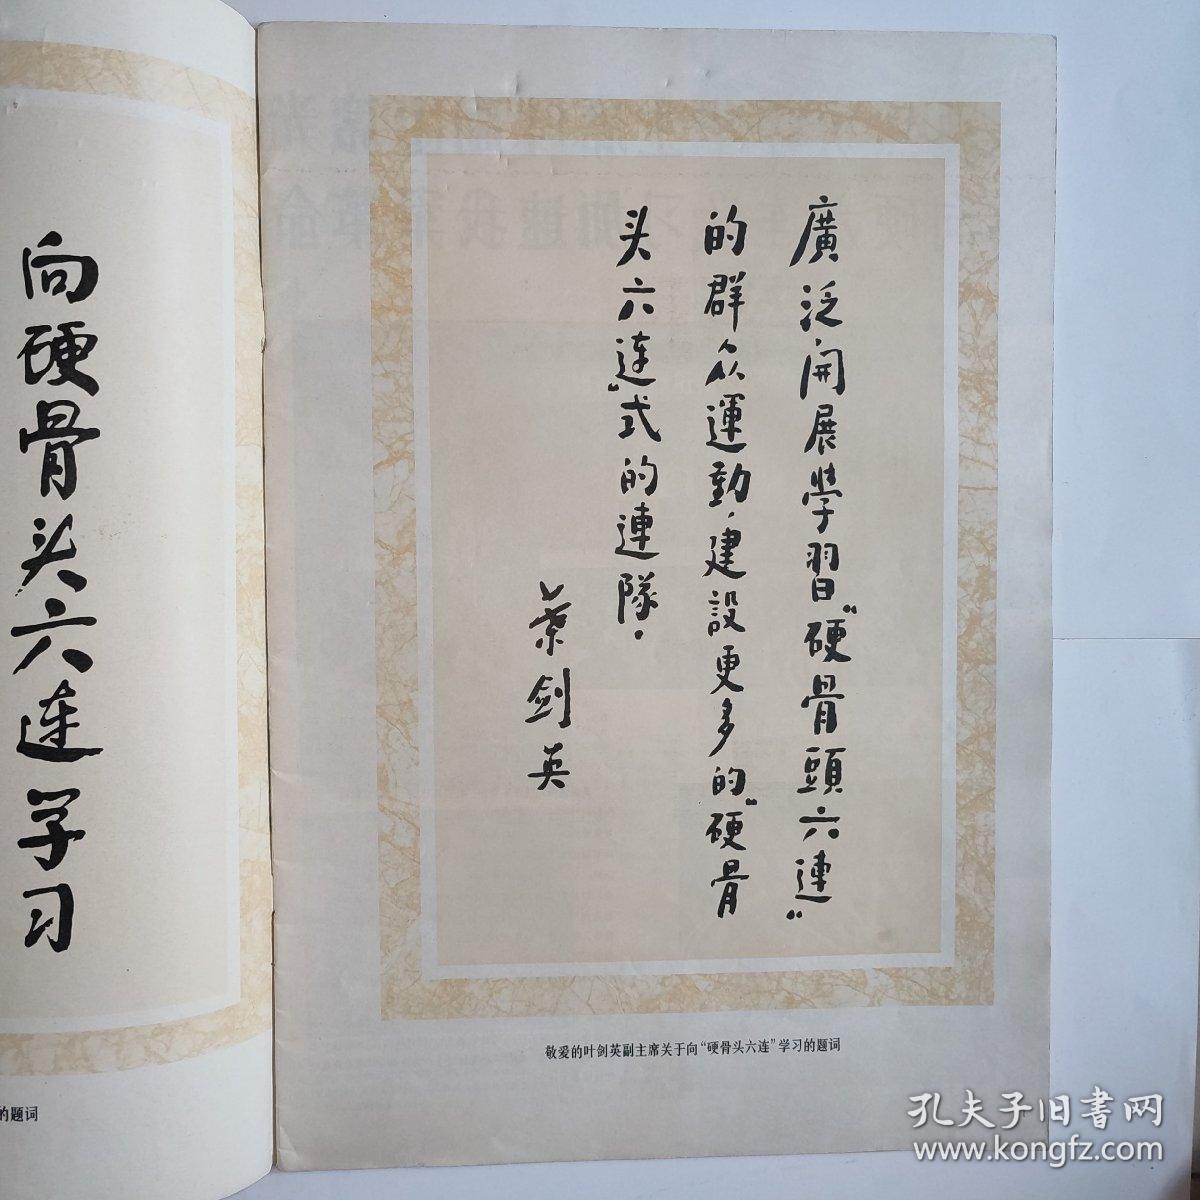 廣泛開展學習“硬骨頭六連”
的群众運動，建設更多的“硬骨
头六连”式的連隊。
葉剑英
敬爱的叶剑英副主席关于向“硬骨头六连”学习的题词
向硬骨头六连学习
的题词
孔夫子旧书网
www.kongfz.com